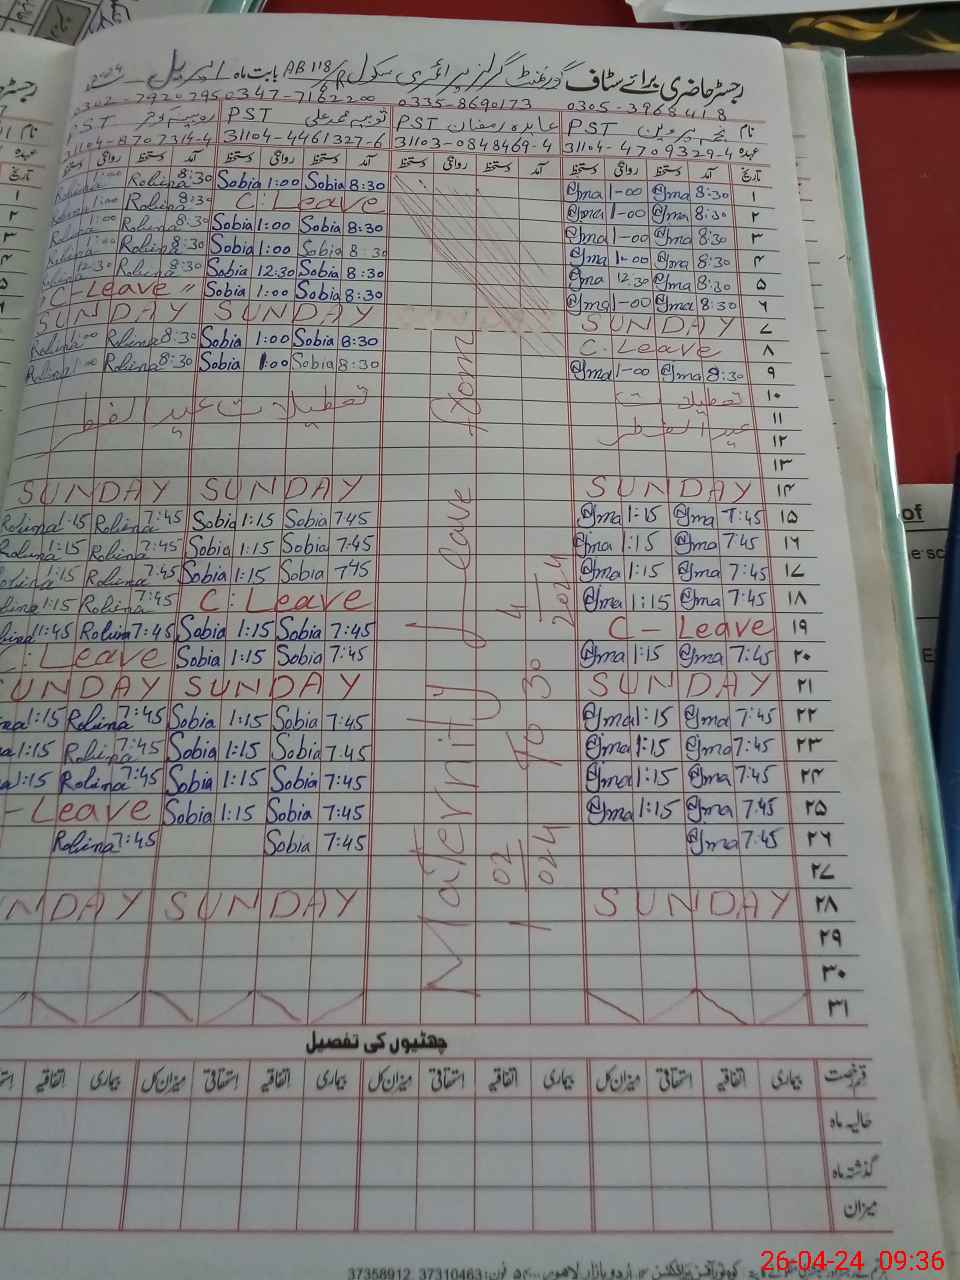 رجسٹر حاضری برائے سٹاف گورنمنٹ گرلز پرائمری سکول AB 118/R بابت ماہ اپریل 2024
0305-3968418 0335-8690173 0347-7162200 0302-7920295
نام PST عابدہ رمضان PST ثوبیہ محمد علی PST PST
عہدہ 31104-4709329-4 31103-0848469-4 31104-4461327-6 31104-8707314-4
تاریخ آمد دستخط روانگی دستخط آمد دستخط روانگی دستخط آمد دستخط روانگی دستخط آمد دستخط روانگی
۱ 8:30 @jma 1-00 @jma 8:30 Sobia 1:00 Sobia 8:30 Robina 1:00
۲ 8:30 @jma 1-00 @jma C:Leave 8:30 Robina 1:00
۳ 8:30 @jma 1-00 @jma 8:30 Sobia 1:00 Sobia 8:30 Robina 1:00
۴ 8:30 @jma 1-00 @jma 8:30 Sobia 1:00 Sobia 8:30 Robina 1:00
۵ 8:30 @jma 12:30 @jma 8:30 Sobia 12:30 Sobia 8:30 Robina 12:30
۶ 8:30 @jma 1-00 @jma 8:30 Sobia 1:00 Sobia C-Leave "
۷ SUNDAY SUNDAY SUNDAY
۸ C.Leave 8:30 Sobia 1:00 Sobia 8:30 Robina 1:00
۹ 8:30 @jma 1-00 @jma 8:30 Sobia 1:00 Sobia 8:30 Robina 1:00
۱۰ تعطیلات تعطیلات عید الفطر
۱۱ عید الفطر
۱۲
۱۳
۱۴ SUNDAY SUNDAY SUNDAY
۱۵ 7:45 @jma 1:15 @jma 7:45 Sobia 1:15 Sobia 7:45 Robina 1:15 Robina
۱۶ 7:45 @jma 1:15 @jma 7:45 Sobia 1:15 Sobia 7:45 Robina 1:15
۱۷ 7:45 @jma 1:15 @jma 7:45 Sobia 1:15 Sobia 7:45 Robina 1:15
۱۸ 7:45 @jma 1:15 @jma C:Leave 7:45 Robina 1:15
۱۹ C-Leave 7:45 Sobia 1:15 Sobia 7:45 Robina 1:45
۲۰ 7:45 @jma 1:15 @jma 7:45 Sobia 1:15 Sobia C:Leave
۲۱ SUNDAY SUNDAY SUNDAY
۲۲ 7:45 @jma 1:15 @jma 7:45 Sobia 1:15 Sobia 7:45 Robina 1:15
۲۳ 7:45 @jma 1:15 @jma 7:45 Sobia 1:15 Sobia 7:45 Robina 1:15
۲۴ 7:45 @jma 1:15 @jma 7:45 Sobia 1:15 Sobia 7:45 Robina 1:15
۲۵ 7:45 @jma 1:15 @jma 7:45 Sobia 1:15 Sobia -Leave
۲۶ 7:45 @jma 7:45 Sobia 7:45 Robina
۲۷
۲۸ SUNDAY SUNDAY NDAY
۲۹
۳۰
۳۱
Maternity Leave from
1 02/024 To 30 4/2024
چھٹیوں کی تفصیل
قسم رخصت بیماری اتفاقیہ استحقاقی میزان کل بیماری اتفاقیہ استحقاقی میزان کل بیماری اتفاقیہ استحقاقی میزان کل بیماری اتفاقیہ
حالیہ ماہ
گذشتہ ماہ
میزان
اردو بازار لاہور فون: 37310463, 37358912
of
26-04-24 09:36